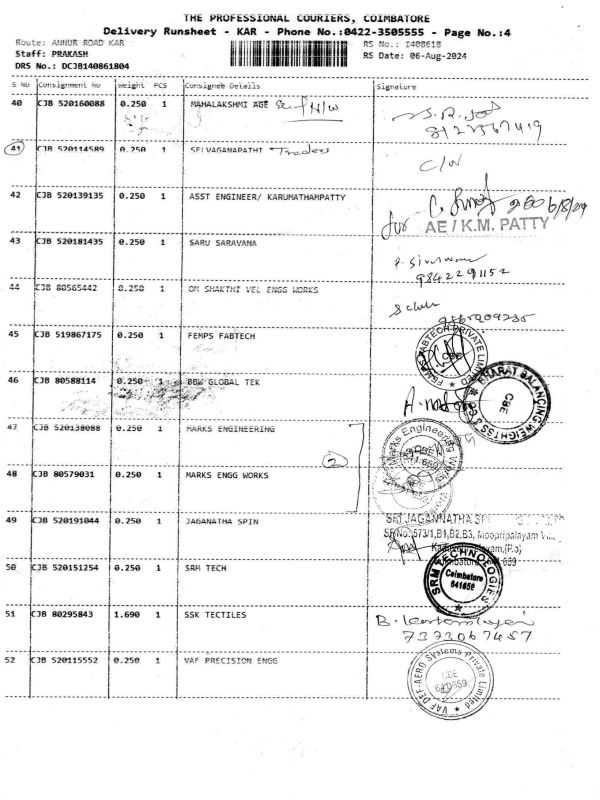 THE PROFESSIONAL COURIERS, COIMBATORE
Delivery Runsheet - KAR - Phone No.:0422-3505555 - Page No.:4
Route: ANNUR ROAD KAR RS No.: I408618
Staff: PRAKASH RS Date: 06-Aug-2024
DRS No.: DCJB140861804
S No Consignment No Weight PCS Consignee Details Signature
40 CJB 520160088 0.250 1 MAHALAKSHMI AGE
41 CJB 520114589 0.250 1 SELVAGANAPATHI Traders
42 CJB 520139135 0.250 1 ASST ENGINEER/ KARUMATHAMPATTY
for AE / K.M. PATTY
43 CJB 520181435 0.250 1 SARU SARAVANA
9842291152
44 CJB 80565442 0.250 1 OM SHAKTHI VEL ENGG WORKS
45 CJB 519867175 0.250 1 FEMPS FABTECH
CBE
46 CJB 80588114 0.250 1 BBW GLOBAL TEK
BHARAT BALANCING WEIGHTSS
CBE
47 CJB 520138088 0.250 1 MARKS ENGINEERING
Marks Engineering Works
2
48 CJB 80579031 0.250 1 MARKS ENGG WORKS
49 CJB 520191044 0.250 1 JAGANATHA SPIN
SRI JAGANNATHA
SF.No. 573/1,B1,B2,B3, Moopripalayam
50 CJB 520151254 0.250 1 SRM TECH
SRM TECHNOLOGIES
Coimbatore
641659
51 CJB 80295843 1.690 1 SSK TECTILES
7373067457
52 CJB 520115552 0.250 1 VAF PRECISION ENGG
VAF DEF-AERO Systems Private Limited
CBE